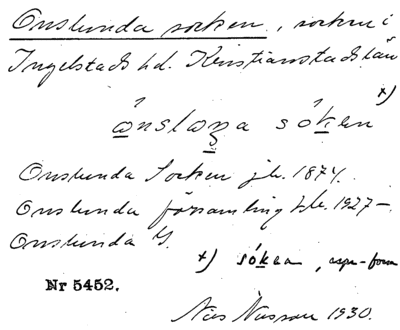 Onslunda socken, socken i
Ingelstads hd. Kristianstads län
ånslana sóken x)
Onslunda Socken jb. 1874.
Onslunda församling f.b. 1927-
Onslunda G.
x) sóken, uppr-form
Nr 5452.
Nils Nilsson 1930.